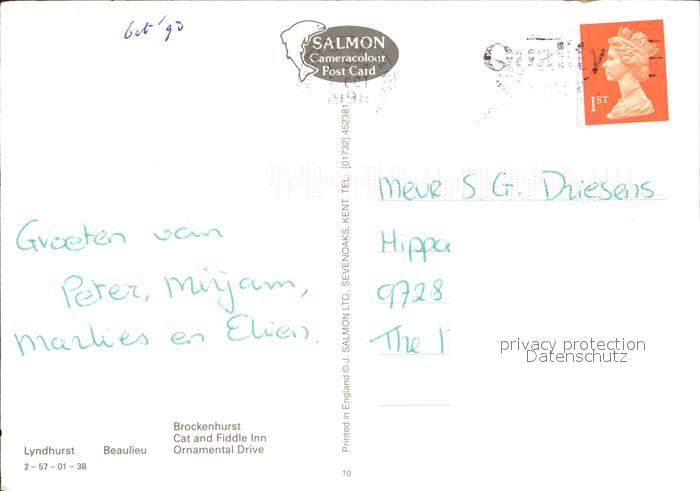 Oct '90
SALMON
Cameracolour
Post Card
1ST
Printed in England © J. SALMON LTD., SEVENOAKS, KENT. TEL: (01732) 452381
Groeten van
Peter, Mirjam,
Marlies en Elien.
Mevr S G. Driesens
Hippa
9728
The
privacy protection
Datenschutz
Brockenhurst
Cat and Fiddle Inn
Lyndhurst Beaulieu Ornamental Drive
2-57-01-38
10